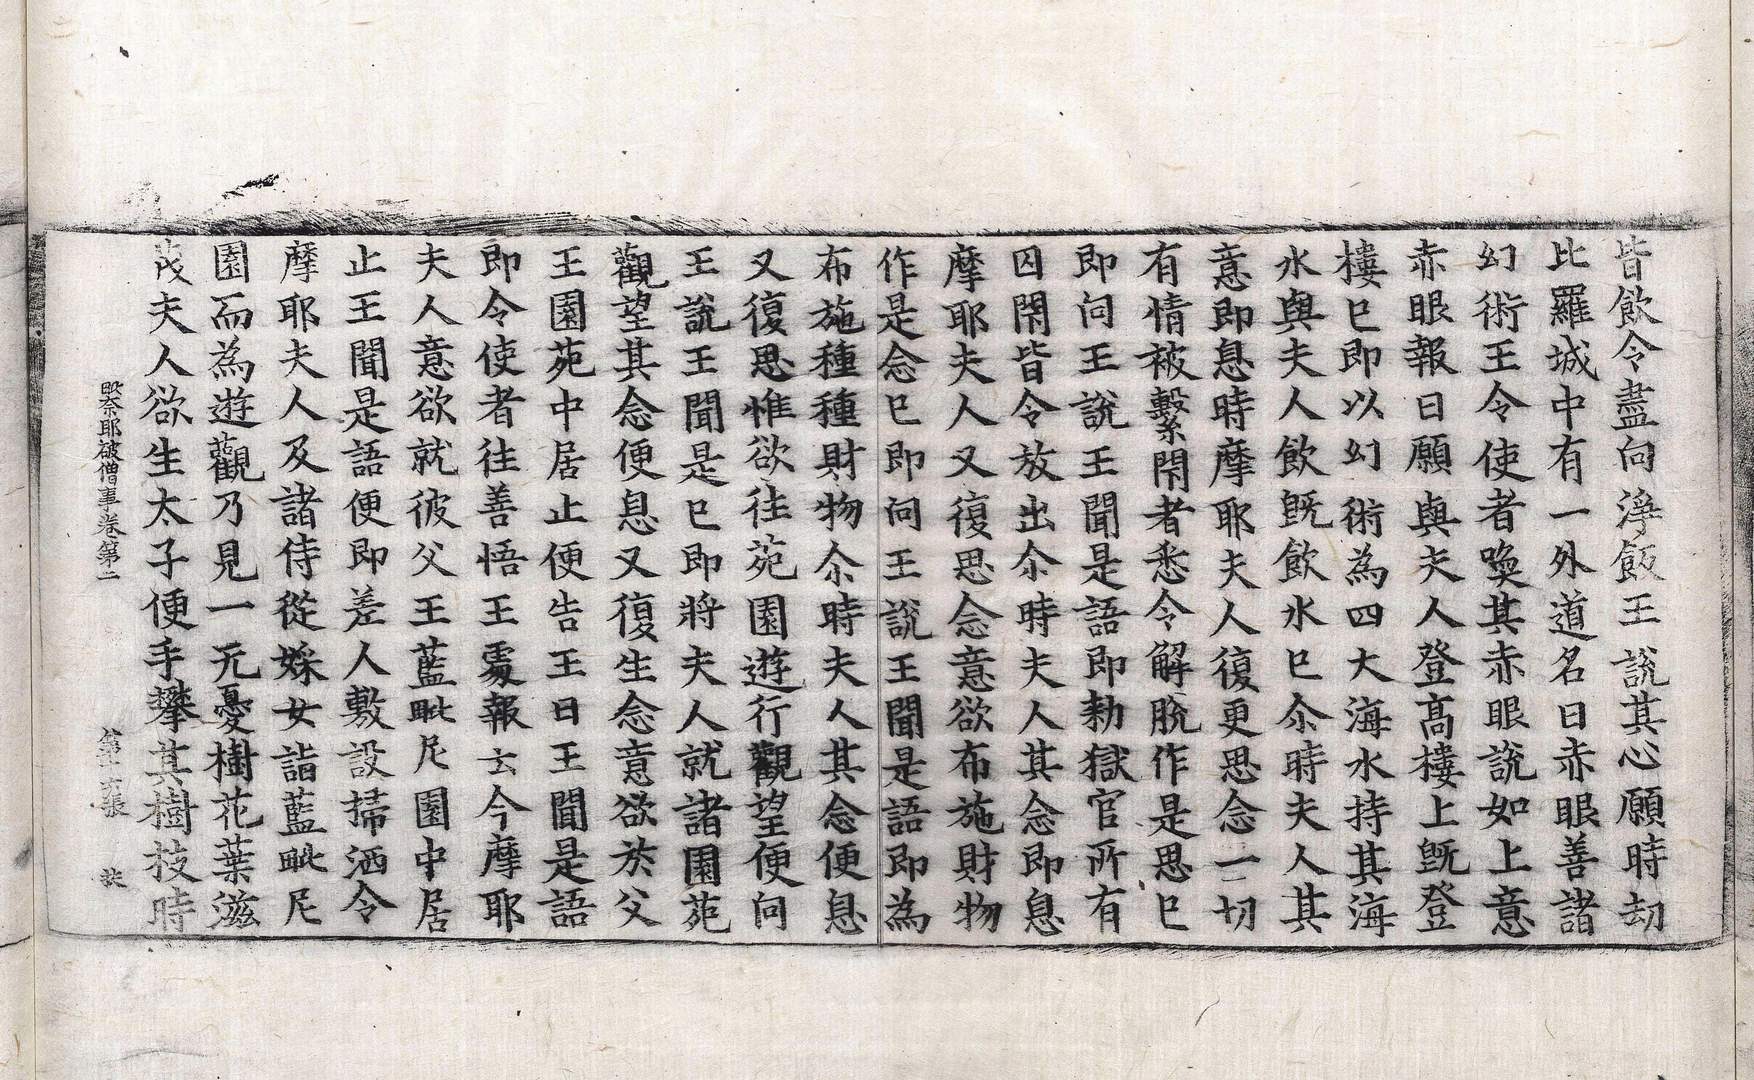 皆飮令盡向淨飯王說其心願時劫
比羅城中有一外道名曰赤眼善諸
幻術王令使者喚其赤眼說如上意
赤眼報曰願與夫人登高樓上旣登
樓已即以幻術為四大海水持其海
水與夫人飮旣飮水已尒時夫人其
意即息時摩耶夫人復更思念一切
有情被繫閇者悉令解脫作是思已
即向王說王聞是語即勑獄官所有
囚閇皆令放出尒時夫人其念即息
摩耶夫人又復思念意欲布施財物
作是念已即向王說王聞是語即為
布施種種財物尒時夫人其念便息
又復思惟欲往苑園遊行觀望便向
王說王聞是已即將夫人就諸園苑
觀望其念便息又復生念意欲於父
王園苑中居止便告王曰王聞是語
即令使者往善悟王䖏報云今摩耶
夫人意欲就彼父王藍毗尼園中居
止王聞是語便即差人敷設掃洒令
摩耶夫人及諸侍從婇女詣藍毗尼
園而為遊觀乃見一无憂樹花葉滋
茂夫人欲生太子便手攀其樹枝時
毀奈耶破僧事卷第二 第十六張